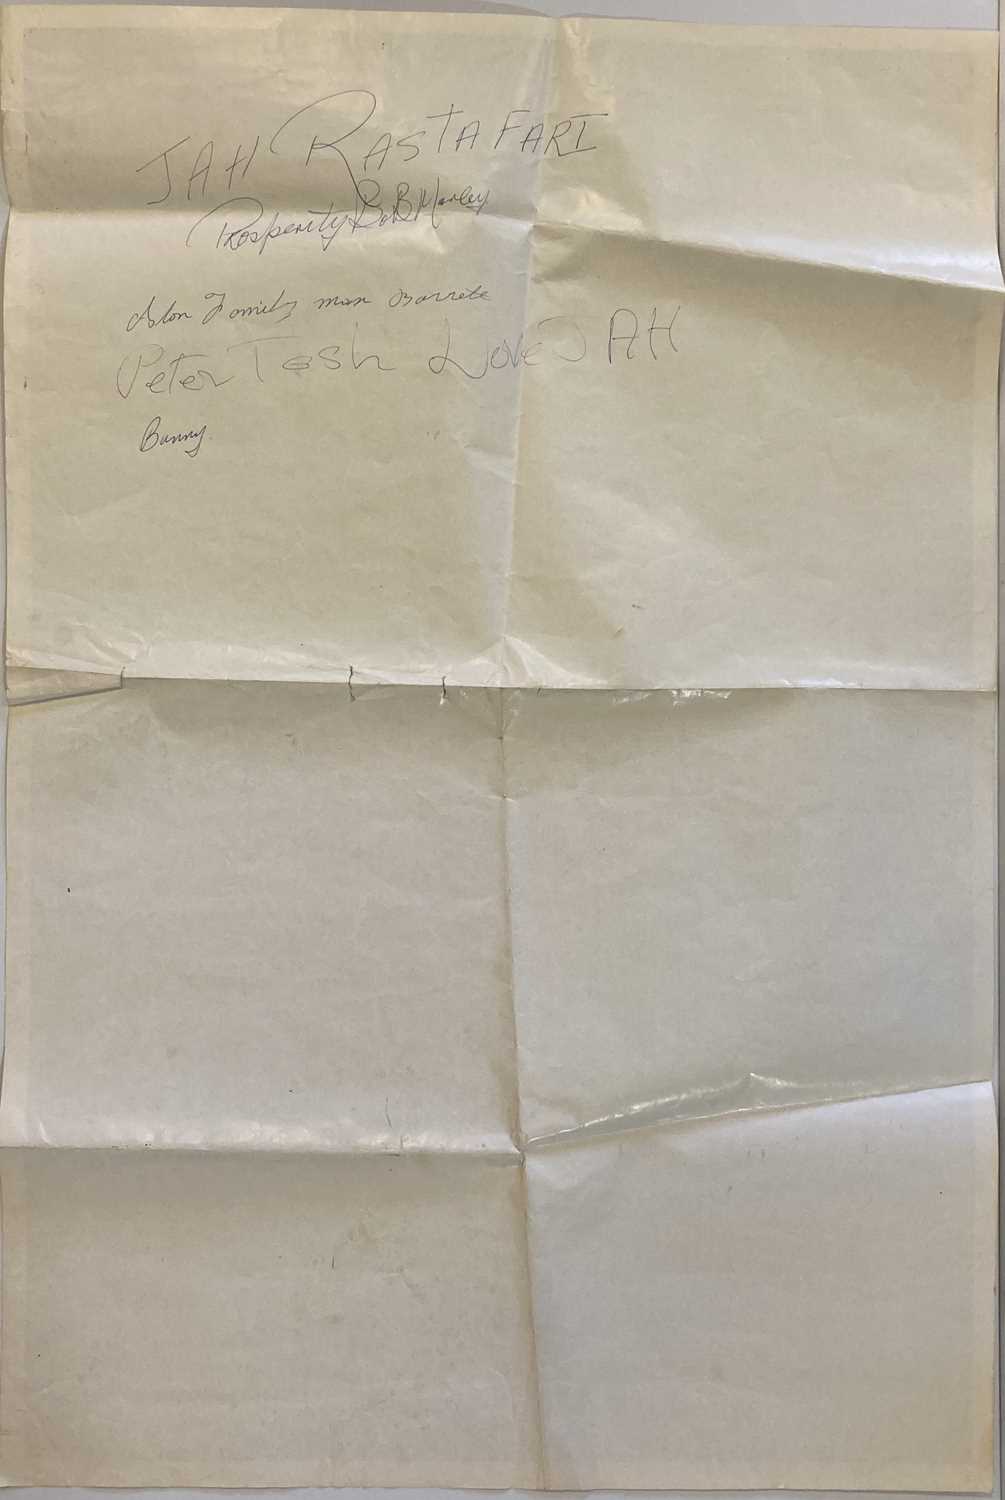 JAH RASTAFARI
Prosperity BoB Marley
Aston Family man Barrett
Peter Tosh Love JAH
Bunny.